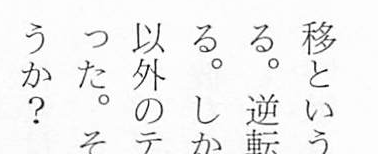 移という
る。逆転
る。しか
以外のテ
った。そ
うか？